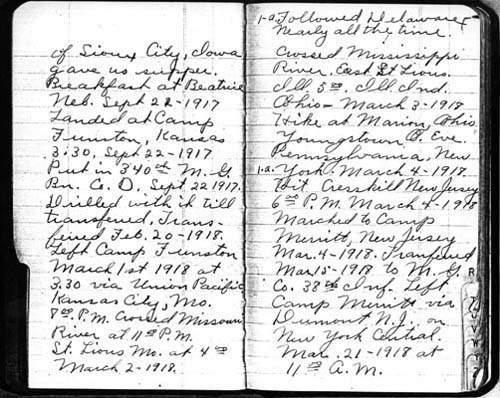 of Sioux City, Iowa
gave us supper.
Breakfast at Beatrice
Neb. Sept 22-1917
Landed at Camp
Funston, Kansas
3:30. Sept 22-1917
Put in 340th M. G.
Bn. Co. D. Sept 22 1917.
Drilled with it till
transfered. Trans-
fered Feb. 20-1918.
Left Camp Funston
March 1st 1918 at
3.30 via Union Pacific
Kansas City, Mo.
8 P.M. Crossed Missouri
River at 11 P.M.
St. Lious Mo. at 4
March 2-1918.
1-a. Followed Delaware
nearly all the time.
Crossed Mississippi
River. East St Lious.
Ill. 5 Ill Ind.
Ohio- March 3-1918
Hike at Marion, Ohio
Youngstown O. Eve.
Pennsylvania, New
1-a. York. March 4-1918.
Hit Cresskill New Jersey
6 P.M. March 4-1918
Marched to Camp
Merritt, New Jersey
Mar. 4-1918. Tranfered
Mar 15-1918 to M. G.
Co. 38th Inf. Left
Camp Merritt via
Dumont N.J. on
New York Central.
Mar. 21-1918 at
11 A.M.